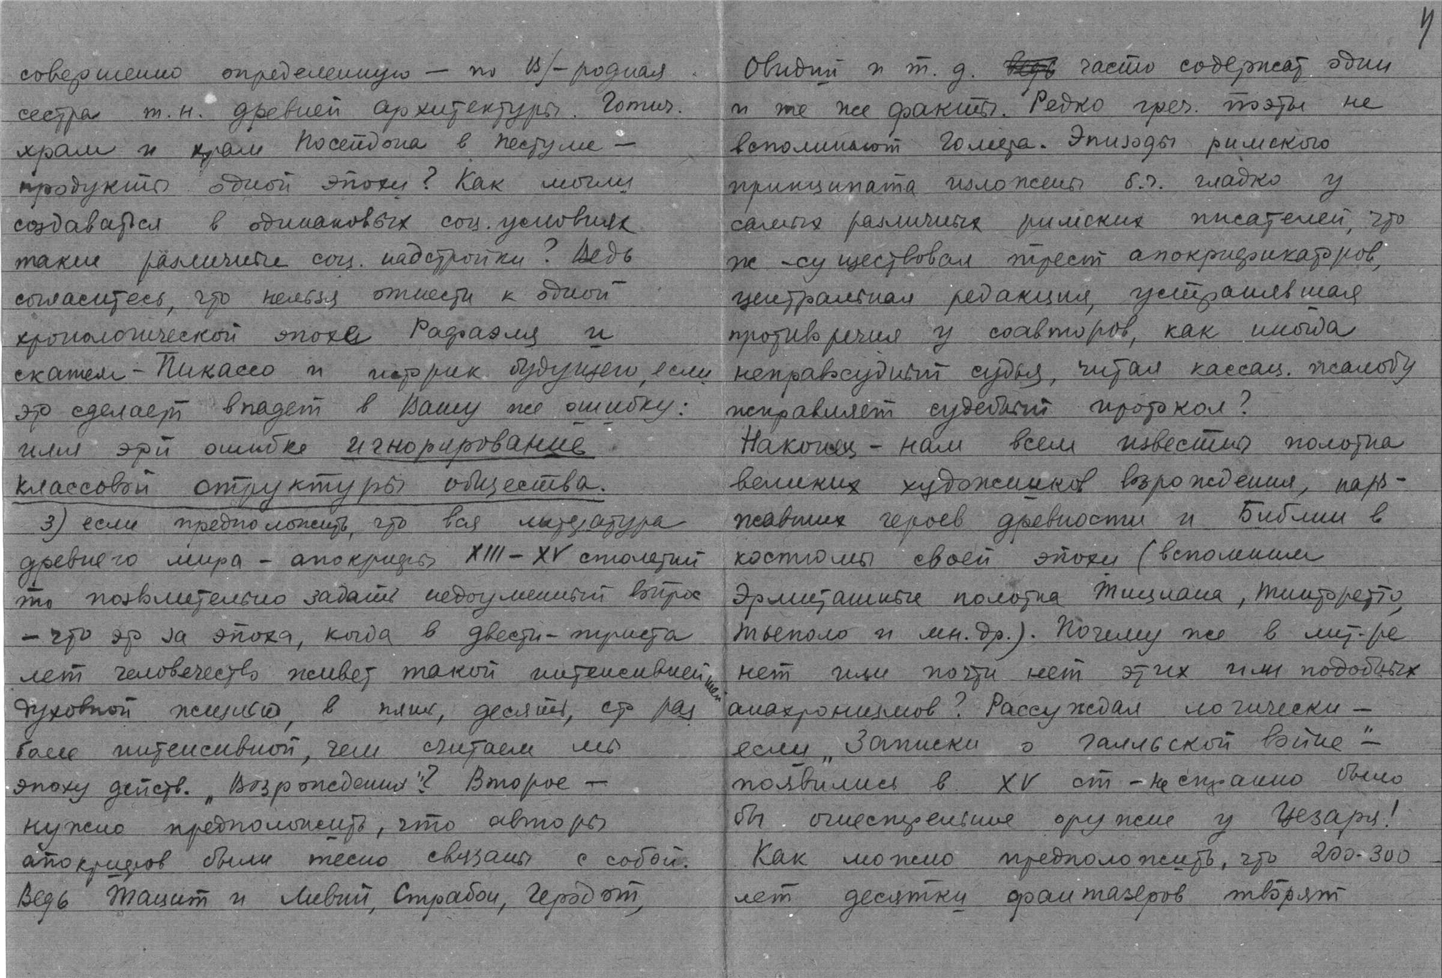 совершенно определенную — по В/– родная
сестра т.н. древней архитектуры. Готич.
храм и храм Посейдона в Пестуме —
продукты одной эпохи? Как могли
создаваться в одинаковых соц. условиях
такие различные соц. надстройки? Ведь
согласитесь, что нельзя отнести к одной
хронологической эпохе Рафаэля и
скажем – Пикассо и историк будущего, если
это сделает впадет в Вашу же ошибку:
имя этой ошибке игнорирование
классовой структуры общества.
3) если предположить, что вся литература
древнего мира – апокрифы XIII – XV столетий
то позволительно задать недоуменный вопрос
– что это за эпоха, когда в двести – триста
лет человечество живет такой интенсивнейшей
духовной жизнью, в пять, десять, сто раз
более интенсивной, чем считаем мы
эпоху действ. „Возрождения"? Второе —
нужно предположить, что авторы
апокрифов были тесно связаны с собой.
Ведь Тацит и Ливий, Страбон, Геродот,
4
Овидий и т. д. часто содержат одни
и те же факты. Редко греч. поэты не
вспоминают Гомера. Эпизоды римского
принципата изложены б.г. гладко у
самых различных римских писателей, что
ж – существовал трест апокрификаторов,
центральная редакция, устранявшая
противоречия у соавторов, как иногда
неправосудный судья, читая кассац. жалобу
исправляет судебный протокол?
Наконец – нам всем известны полотна
великих художников возрождения, наря-
жавших героев древности и Библии в
костюмы своей эпохи (вспомним
Эрмитажные полотна Тициана, Тинторетто,
Тьеполо и мн. др.). Почему же в лит-ре
нет или почти нет этих или подобных
анахронизмов? Рассуждая логически —
если „Записки о галльской войне" –
появились в XV ст – не странно было
бы огнестрельное оружие у Цезаря!
Как можно предположить, что 200-300
лет десятки фантазеров творят